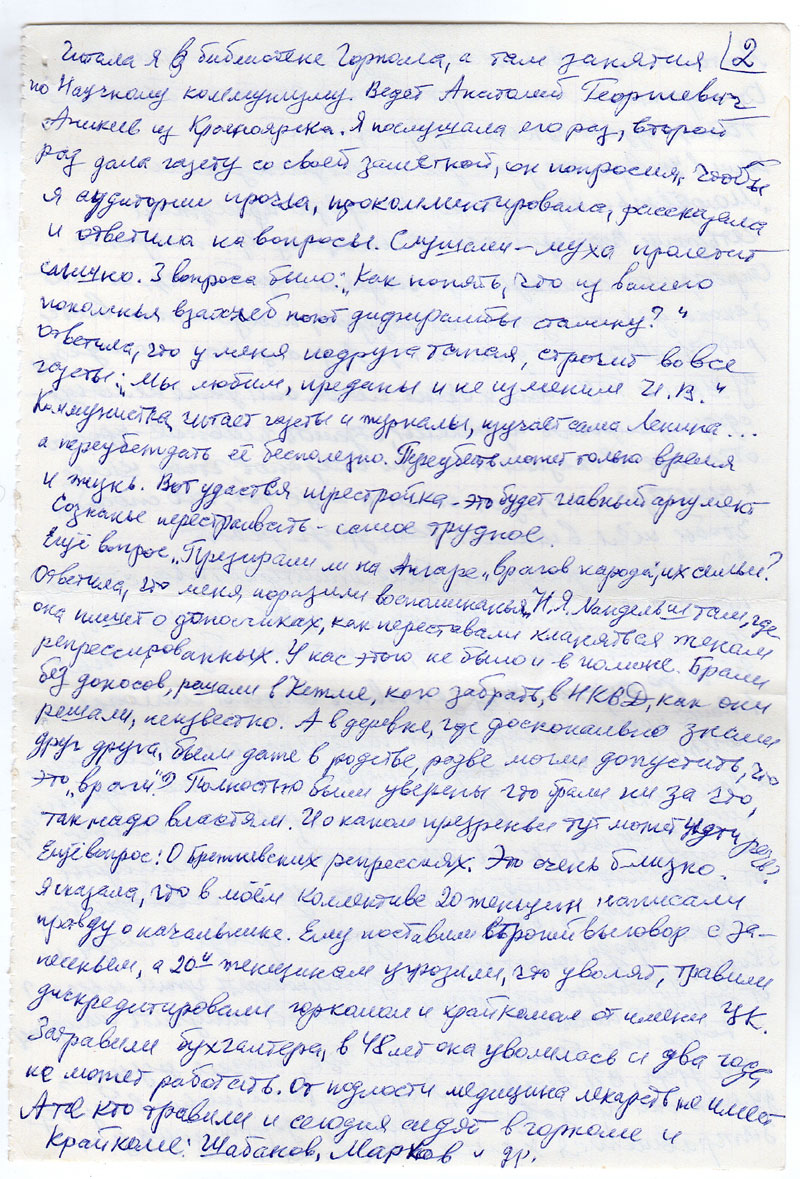 2
Читала я в библиотеке Горкома, а там занятия
по Научному коммунизму. Ведет Анатолий Георгиевич
Аникеев из Красноярска. Я послушала его раз, второй
раз дала газету со своей заметкой, он попросил, чтобы
я аудитории прочла, прокомментировала, рассказала
и ответила на вопросы. Слушали – муха пролетит
слышно. 3 вопроса было: „Как понять, что из вашего
поколенья взахлеб поют дифирамбы сталину?“
ответила, что у меня подруга такая, строчит во все
газеты: „Мы любим, преданы и не изменим И.В.“
Коммунистка, читает газеты и журналы, изучает сама Ленина...
а переубеждать её бесполезно. Переубедить может только время
и жизнь. Вот удастся перестройка – это будет главный аргумент
Сознанье перестраивать – самое трудное.
Ещё вопрос „Презирали ли на Ангаре „врагов народа“, их семьи?
Ответила, что меня поразили воспоминанья Н.Я. Мандельштам, где
она пишет о доносчиках, как переставали кланяться женам
репрессированных. У нас этого не было и в помине. Брали
без доносов, решали в Кежме, кого забрать, в НКВД, как они
решали, неизвестно. А в деревне, где досконально знали
друг друга, были даже в родстве, разве могли допустить, что
это „враги“? Полностью были уверены что брали ни за что,
так надо властям. И о каком презреньи тут может идти речь?
Ещё вопрос: О Брежневских репрессиях. Это очень близко.
Я сказала, что в моём коллективе 20 женщин написали
правду о начальнике. Ему поставили строгий выговор с за-
несеньем, а 20и женщинам угрозили, что уволят, травили
дискредитировали горкомом и крайкомом от имени ЦК.
Затравили бухгалтера, в 48 лет она уволилась и два года
не может работать. От подлости медицина лекарств не имеет
А те кто травили и сегодня сидят в горкоме и
крайкоме: Шабанов, Марков и др.